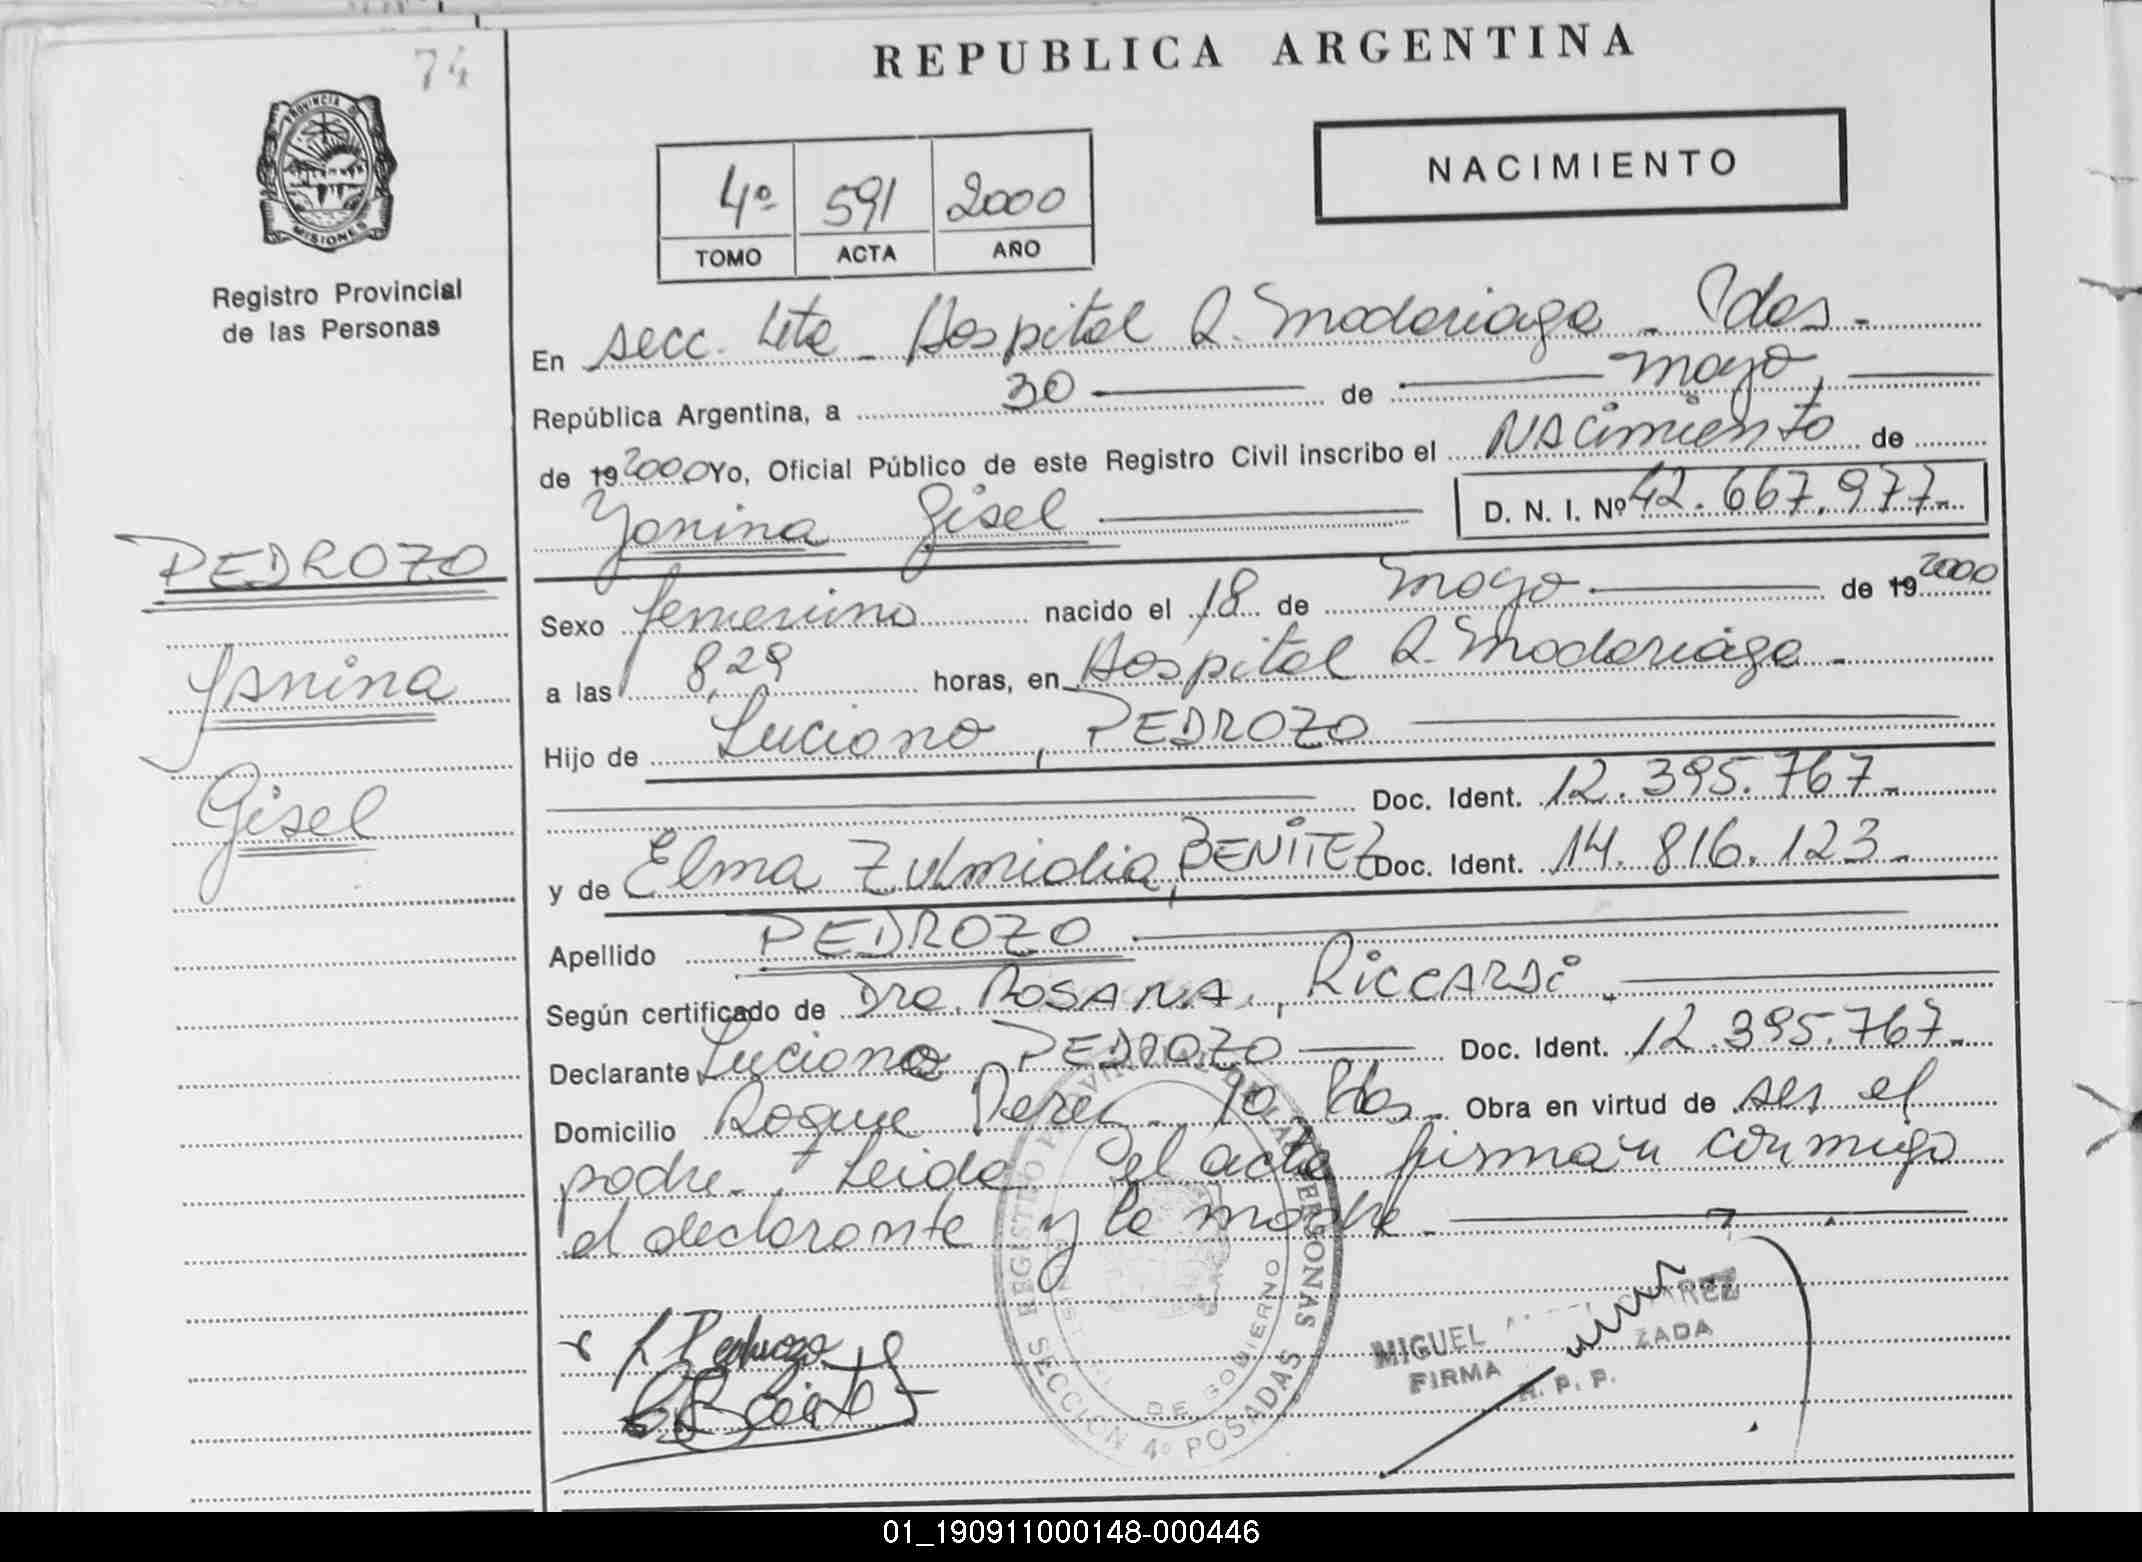 74
REPUBLICA ARGENTINA
PROVINCIA DE
MISIONES
Registro Provincial
de las Personas
NACIMIENTO
4º 591 2000
TOMO ACTA AÑO
En secc. 4ta - Hospital R. Madariaga - Pdas.-
República Argentina, a 30 de mayo,
de 19 2000 Yo, Oficial Público de este Registro Civil inscribo el Nacimiento de
Yanina Gisel D. N. I. Nº 42.667.977.-
PEDROZO
Yanina
Gisel
Sexo femenino nacido el 18 de mayo de 19 2000
a las 8,29 horas, en Hospital R. Madariaga -
Hijo de Luciano, PEDROZO
Doc. Ident. 12.395.767.-
y de Elma Zulmidia, BENITEZ Doc. Ident. 14.816.123.-
Apellido PEDROZO
Según certificado de Dra. ROSANA, RiCCARDi.
Declarante Luciano PEDROZO Doc. Ident. 12.395.767.-
Domicilio Roque Perez - Pdas.- Obra en virtud de ser el
padre.- Leida el acta firman conmigo
el declarante y la madre.-
REGISTRO PROVINCIAL DE LAS PERSONAS
DE GOBIERNO
SECCION 4º POSADAS
L Pedrozo
MIGUEL
FIRMA ZADA
R. P. P.
01_190911000148-000446